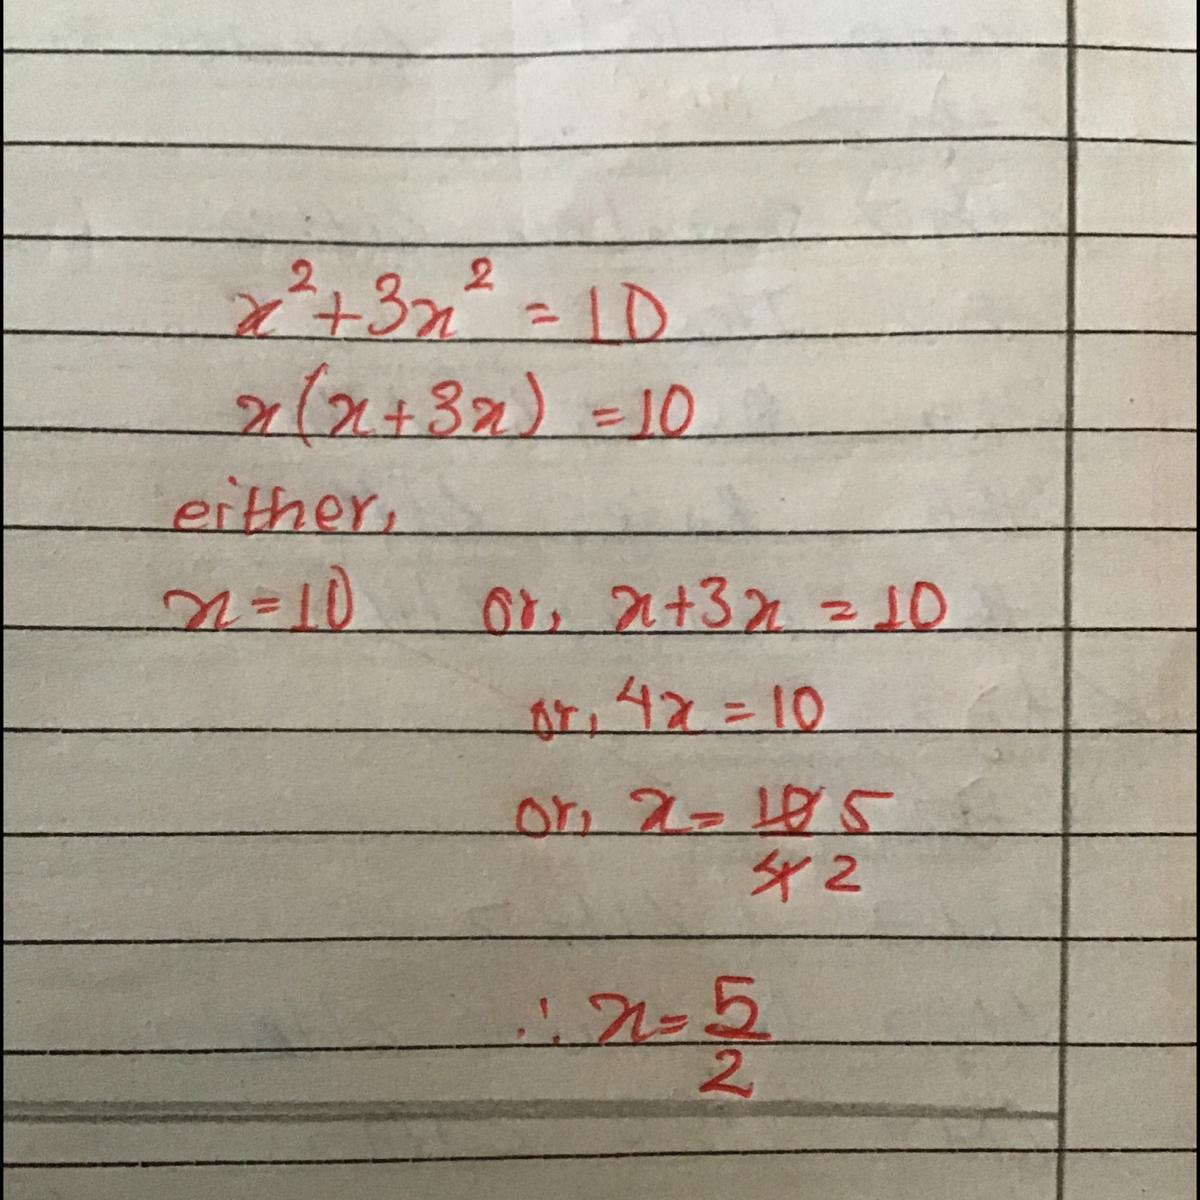 x²+3x² = 10
x(x+3x) = 10
either,
x = 10 or, x+3x = 10
or, 4x = 10
or, x = 10 5
4 2
∴ x = 5/2